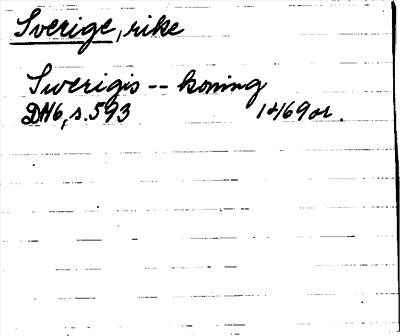 Sverige, rike
Swerigis -- koning
DN6, s. 593 1469 or.